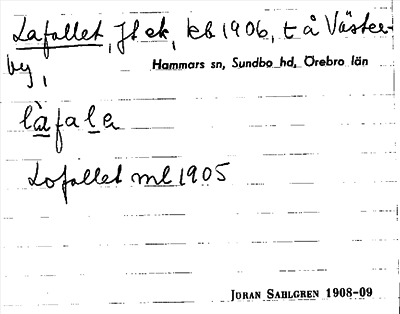 Lafallet, Jl ek, kb 1906, t å Väster-
by,
Hammars sn, Sundbo hd, Örebro län
làfala
Lofallet ml 1905
JÖRAN SAHLGREN 1908-09